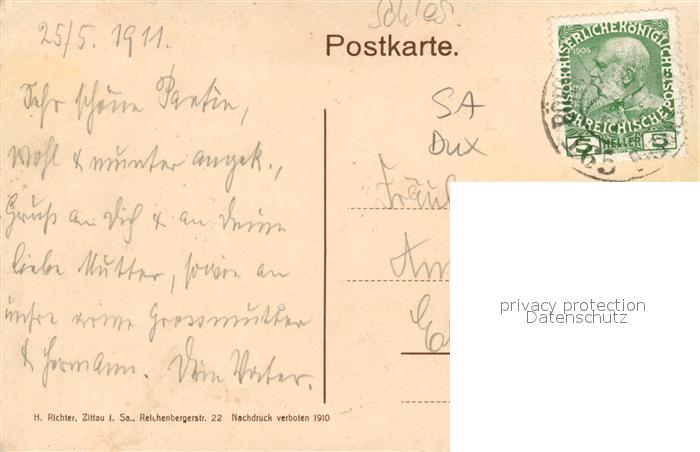 Schles.
25/5. 1911.
Postkarte.
Sehr schöne Partie,
Wohl & munter angek.,
Gruß an Dich & an Deine
liebe Mutter, sowie an
unsre arme Grossmutter
& Hermann. Dein Vater.
SA
Dux
Fräul
H. Richter, Zittau i. Sa., Reichenbergerstr. 22 Nachdruck verboten 1910
KAISERLICHE KÖNIGLICHE
ÖSTERREICHISCHE POST
1908
5 HELLER 5
privacy protection
Datenschutz